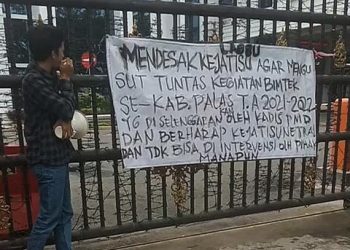 LABBU
MENDESAK KEJATISU AGAR MENGU
SUT TUNTAS KEGIATAN BIMTEK
SE-KAB. PALAS T.A 2021-202
YG DI SELENGGARAKAN OLEH KADIS PMD
DAN BERHARAP KEJATISU NETRAL
DAN TDK BISA DI INTERVENSI OLEH PIHAK
MANAPUN